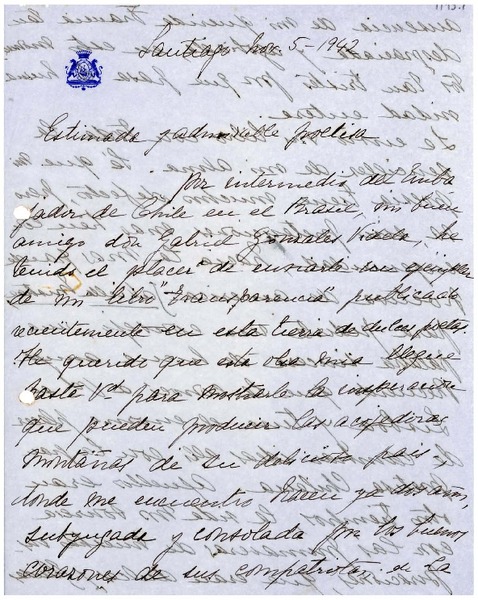 Santiago Nov. 5-1942
Estimada y admirable poetisa
Por intermedio del Emba
jador de Chile en el Brasil, mi buen
amigo don Gabriel Gonzales Videla, he
tenido el placer de enviarle un ejemplar
de mi libro "Transparencia" publicado
recientemente en esta tierra de dulces poetas.
He querido que esta obra mia llegue
hasta Vd para mostrarle la inspiración
que pueden producir las acojedoras
montañas de su delicioso pais
donde me encuentro hacen ya dos años,
subyugada y consolada por los buenos
corazones de sus compatriotas. en la